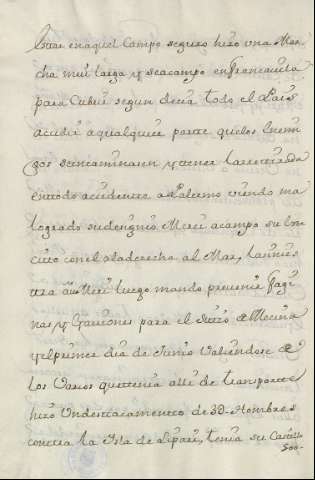 estar en aquel Campo seguro hizo vna Mar-
cha mui larga y se acampo en francavila
para Cubrir segun decia todo el Pais
acudir a qualquier parte que los Enemi
gos se encaminasen y tener la retirada
en todo accidente a Palermo viendo ma
logrado su designio Merci acampo su Exer
cito con el ala derecha al Mar, la
Merci luego mando prevenir fagi
nas y Gaviones para el Sitio de Mecina
y el primer dia de Junio Valiendose de
los Varios que tenia alli de transportes
hizo Vn destacamento de 3D. Hombres
contra la Isla de Lipari, tenia su Castillo
500-